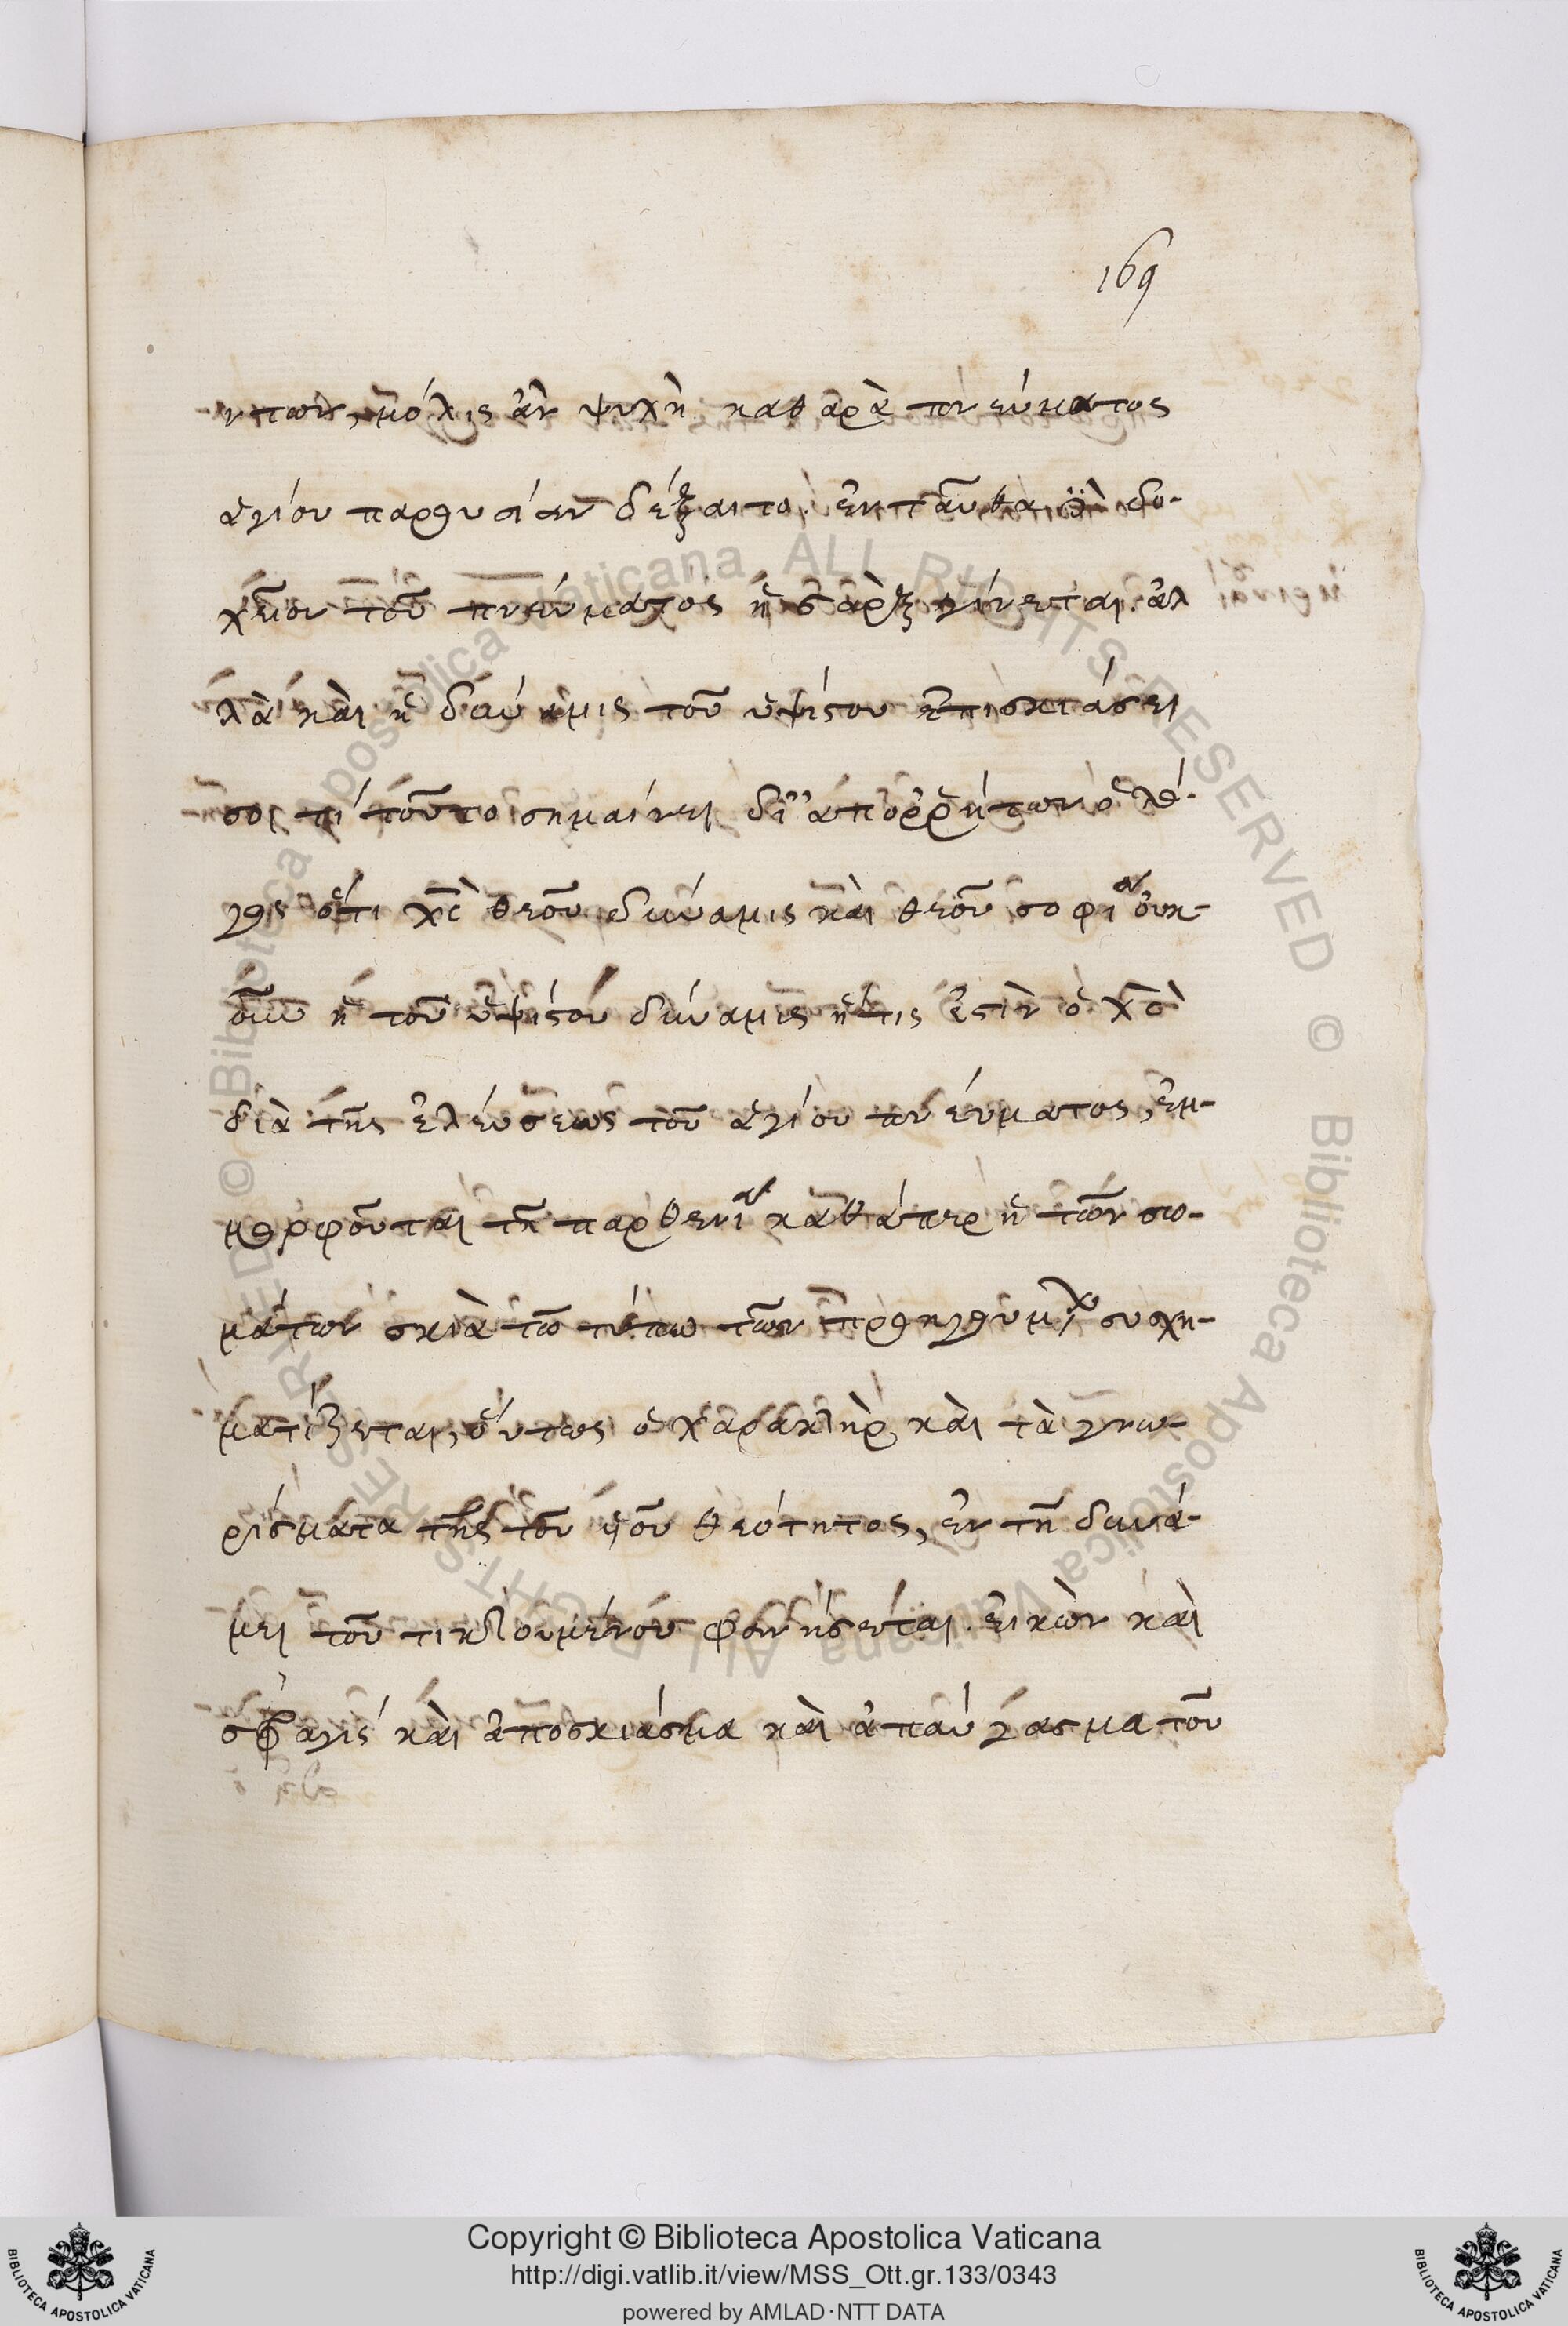 169
ντων, μόλις ἂν ψυχὴ καθαρὰ πνεύματος
ἁγίου παρουσίαν δέξαιτο. ἐνταῦθα δὲ δο-
χεῖον τοῦ πνεύματος ἡ σὰρξ γίνεται. ἀλ
λὰ καὶ ἡ δύναμις τοῦ ὑψίστου ἐπισκιάσει
σοι τί τοῦτο σημαίνει δι' ἀπορρήτων ὁ λό-
γος ὅτι χς θεοῦ δύναμις καὶ θεοῦ σοφία οὐκ-
οῦν ἡ τοῦ ὑψίστου δύναμις ἥτις ἐστὶν ὁ χσ
διὰ τῆς ἐλεύσεως τοῦ ἁγίου πνεύματος, ἐμ-
μορφοῦται τῇ παρθενία καθάπερ ἡ τῶν σω-
μάτων σκιὰ τῶ τύπω τῶν προηγουμ συσχη-
ματίζεται, οὕτως ὁ χαρακτὴρ καὶ τὰ γνω-
ρίσματα τῆς τοῦ υἱοῦ θεότητος, ἐν τῇ δυνά-
μει τοῦ τικτομένου φανήσεται. εἰκὼν καὶ
σφραγὶς καὶ ἀποσκίασμα καὶ ἀπαύγασμα τοῦ
Copyright © Biblioteca Apostolica Vaticana
http://digi.vatlib.it/view/MSS_Ott.gr.133/0343
powered by AMLAD·NTT DATA
BIBLIOTECA APOSTOLICA VATICANA
BIBLIOTECA APOSTOLICA VATICANA
© Biblioteca Apostolica Vaticana ALL RIGHTS RESERVED © Biblioteca Apostolica Vaticana ALL RIGHTS RESERVED